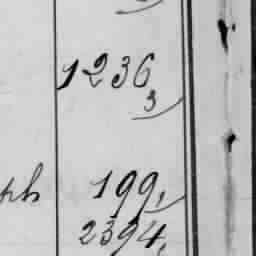 1236
3
ph 199,
2394,